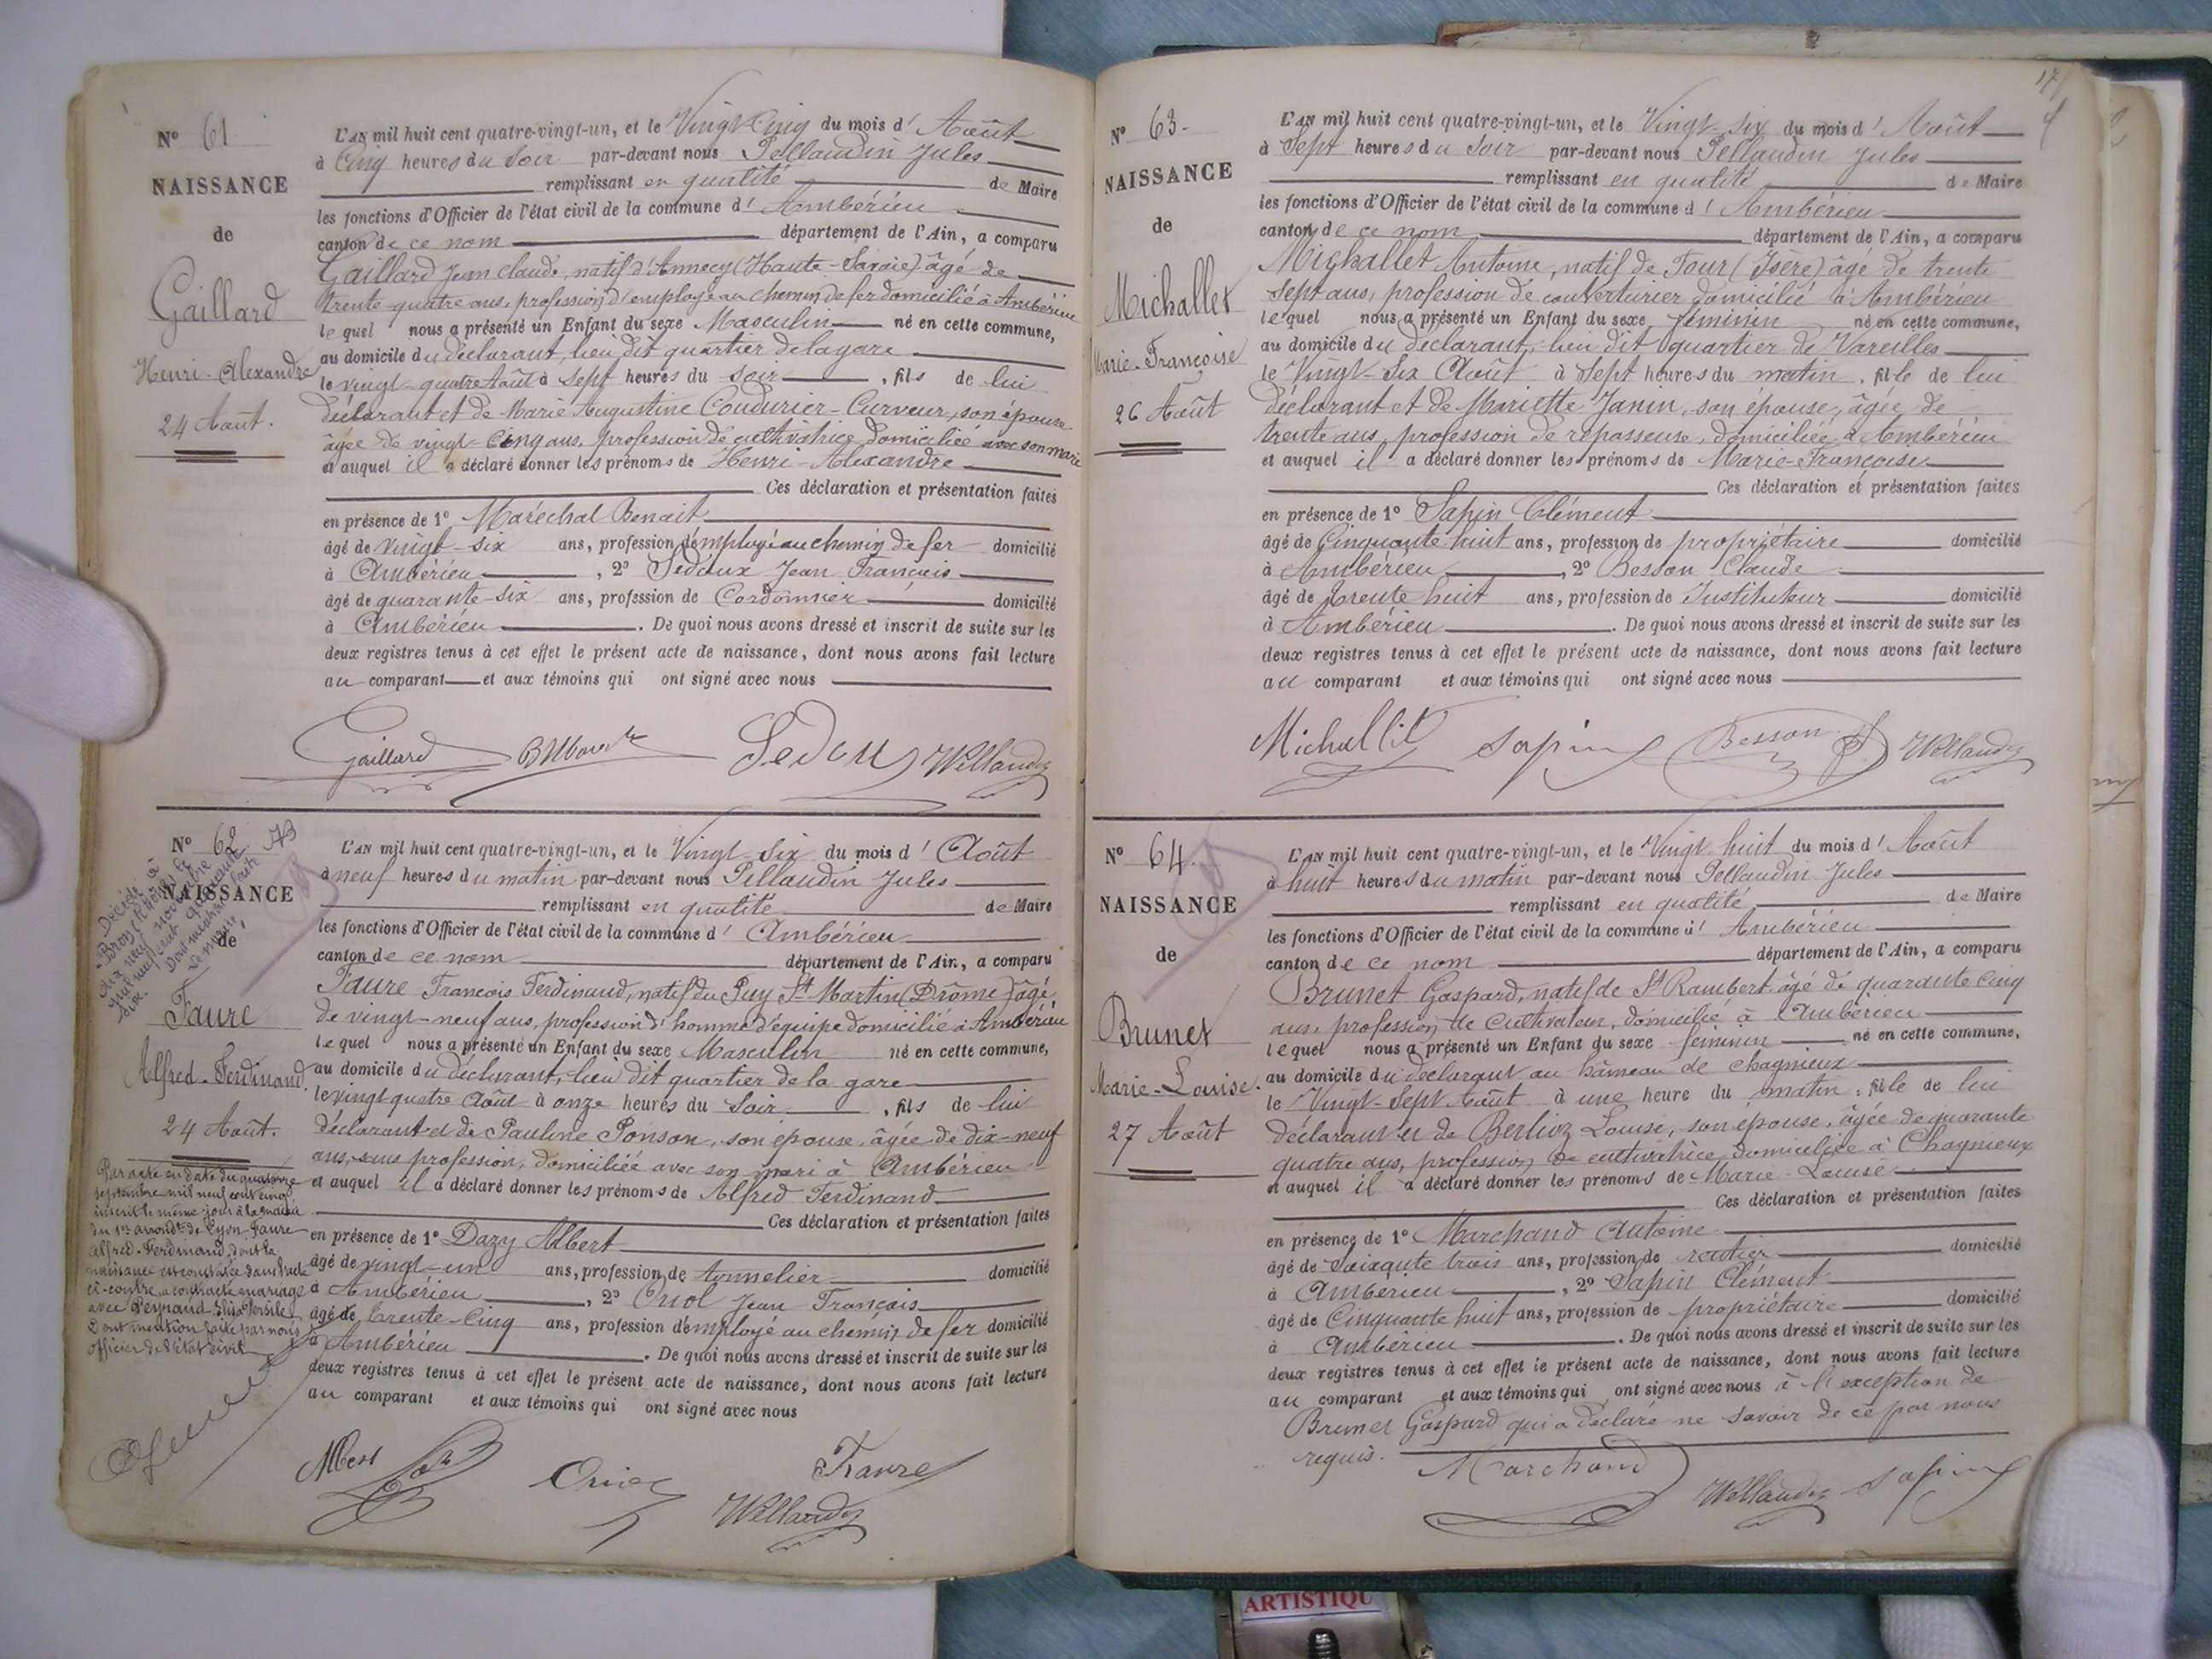 N° 61.
NAISSANCE
de
Gaillard
Henri-Alexandre
24 Août.
L'AN mil huit cent quatre-vingt-un, et le Vingt Cinq du mois d' Août
à Cinq heures du Soir par-devant nous Pellaudin Jules
remplissant en qualité de Maire
les fonctions d'Officier de l'état civil de la commune d' Ambérieu
canton de ce nom département de l'Ain, a comparu
Gaillard Jean Claude, natif d'Annecy (Haute-Savoie) âgé de
trente-quatre ans, profession d'employé au chemin de fer domicilié à Ambérieu
lequel nous a présenté un Enfant du sexe Masculin né en cette commune,
au domicile du déclarant, lieu dit quartier de la gare
le vingt-quatre Août à Sept heures du soir, fils de lui
déclarant et de Marie Augustine Coudurier-Curveur, son épouse
âgée de vingt-Cinq ans, profession de cultivatrice, domiciliée avec son mari
et auquel il a déclaré donner les prénoms de Henri-Alexandre
Ces déclaration et présentation faites
en présence de 1° Maréchal Benoit
âgé de vingt-six ans, profession d'employé au chemin de fer domicilié
à Ambérieu, 2° Sedoux Jean François
âgé de quarante-six ans, profession de Cordonnier domicilié
à Ambérieu. De quoi nous avons dressé et inscrit de suite sur les
deux registres tenus à cet effet le présent acte de naissance, dont nous avons fait lecture
au comparant et aux témoins qui ont signé avec nous
Gaillard
N° 62
NAISSANCE
de
Décédé à
Bron (Rhône) le
dix neuf novembre
mil neuf cent quarante
six. Dont mention faite
Le maire,
Faure
Alfred-Ferdinand.
24 Août.
Par acte en date du quatorze
septembre mil neuf cent cinq
inscrit le même jour à la mairie
du 1er arrondt de Lyon, Faure
Alfred-Ferdinand, dont la
naissance est constatée dans l'acte
ci-contre, a contracté mariage
avec Reynaud
Dont mention faite par nous
officier de l'état civil
L'AN mil huit cent quatre-vingt-un, et le Vingt-Six du mois d' Août
à neuf heures du matin par-devant nous Pellaudin Jules
remplissant en qualité de Maire
les fonctions d'Officier de l'état civil de la commune d' Ambérieu
canton de ce nom département de l'Ain, a comparu
Faure François Ferdinand, natif du Puy St Martin (Drôme) âgé
de vingt-neuf ans, profession d'homme d'équipe domicilié à Ambérieu
lequel nous a présenté un Enfant du sexe Masculin né en cette commune,
au domicile du déclarant, lieu dit quartier de la gare
le vingt quatre Août à onze heures du Soir, fils de lui
déclarant et de Pauline Ponson, son épouse, âgée de dix-neuf
ans, sans profession, domiciliée avec son mari à Ambérieu
et auquel il a déclaré donner les prénoms de Alfred Ferdinand
Ces déclaration et présentation faites
en présence de 1° Dazy Albert
âgé de vingt-un ans, profession de tonnelier domicilié
à Ambérieu, 2° Oriol Jean François
âgé de Trente-Cinq ans, profession d'employé au chemin de fer domicilié
à Ambérieu. De quoi nous avons dressé et inscrit de suite sur les
deux registres tenus à cet effet le présent acte de naissance, dont nous avons fait lecture
au comparant et aux témoins qui ont signé avec nous
Albert
Faure
N° 63.
NAISSANCE
de
Michallet
Marie-Françoise
26 Août
L'AN mil huit cent quatre-vingt-un, et le Vingt-Six du mois d' Août
à Sept heures du Soir par-devant nous Pellaudin Jules
remplissant en qualité de Maire
les fonctions d'Officier de l'état civil de la commune d' Ambérieu
canton de ce nom département de l'Ain, a comparu
Michallet Antoine, natif de Tour (Isère) âgé de trente
Sept ans, profession de couverturier domicilié à Ambérieu
lequel nous a présenté un Enfant du sexe féminin né en cette commune,
au domicile du déclarant, lieu dit quartier de Vareilles
le Vingt-Six Août à Sept heures du matin, fille de lui
déclarant et de Mariette Janin, son épouse, âgée de
trente ans, profession de repasseuse, domiciliée à Ambérieu
et auquel il a déclaré donner les prénoms de Marie-Françoise
Ces déclaration et présentation faites
en présence de 1° Sapin Clément
âgé de Cinquante huit ans, profession de propriétaire domicilié
à Ambérieu, 2° Besson Claude
âgé de trente huit ans, profession de Instituteur domicilié
à Ambérieu. De quoi nous avons dressé et inscrit de suite sur les
deux registres tenus à cet effet le présent acte de naissance, dont nous avons fait lecture
au comparant et aux témoins qui ont signé avec nous
Michallet Sapin Besson
N° 64.
NAISSANCE
de
Brunet
Marie-Louise.
27 Août
L'AN mil huit cent quatre-vingt-un, et le Vingt huit du mois d' Août
à huit heures du matin par-devant nous Pellaudin Jules
remplissant en qualité de Maire
les fonctions d'Officier de l'état civil de la commune d' Ambérieu
canton de ce nom département de l'Ain, a comparu
Brunet Gaspard, natif de St Rambert âgé de quarante cinq
ans, profession de Cultivateur, domicilié à Ambérieu
lequel nous a présenté un Enfant du sexe féminin né en cette commune,
au domicile du déclarant au hâmeau de Chagnieux
le Vingt-Sept Août à une heure du matin, fille de lui
déclarant et de Berlioz Louise, son épouse, âgée de quarante
quatre ans, profession de cultivatrice, domiciliée à Chagnieux
et auquel il a déclaré donner les prénoms de Marie-Louise
Ces déclaration et présentation faites
en présence de 1° Marchand Antoine
âgé de Soixante trois ans, profession de rentier domicilié
à Ambérieu, 2° Sapin Clément
âgé de Cinquante huit ans, profession de propriétaire domicilié
à Ambérieu. De quoi nous avons dressé et inscrit de suite sur les
deux registres tenus à cet effet le présent acte de naissance, dont nous avons fait lecture
au comparant et aux témoins qui ont signé avec nous à l'exception de
Brunet Gaspard qui a déclaré ne savoir de ce par nous
requis.
Marchand Sapin
ARTISTIQU